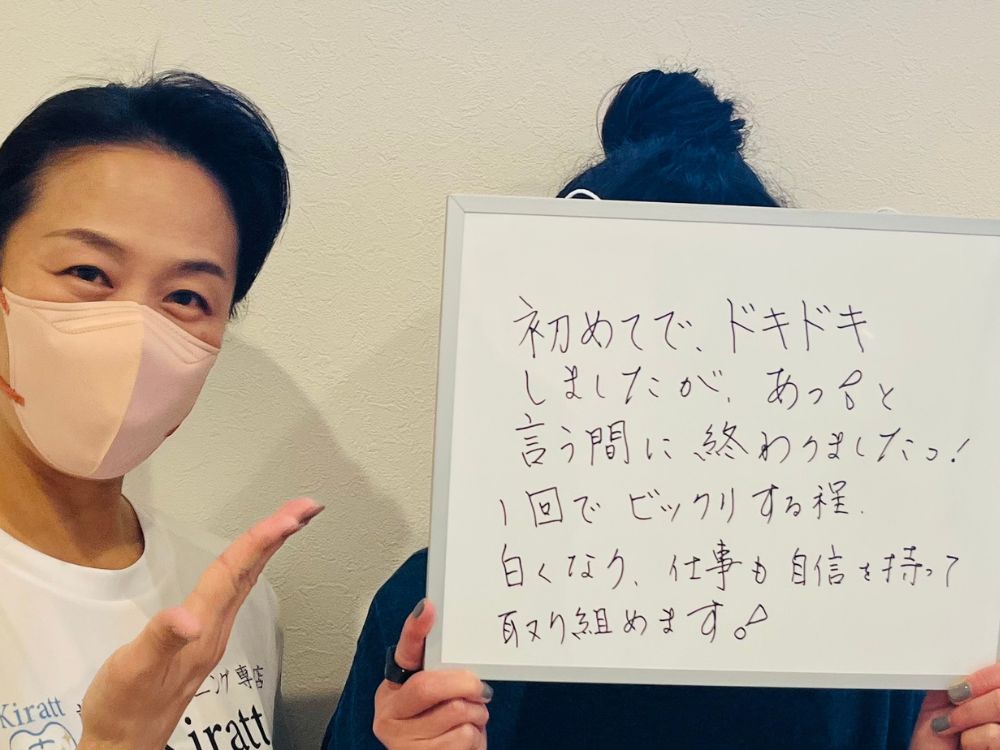 初めてで、ドキドキ
しましたが、あっ!と
言う間に終わりましたっ!
1回でビックリする程、
白くなり、仕事も自信を持って
取り組めます。!
Kiratt
ニング専店
Kiratt